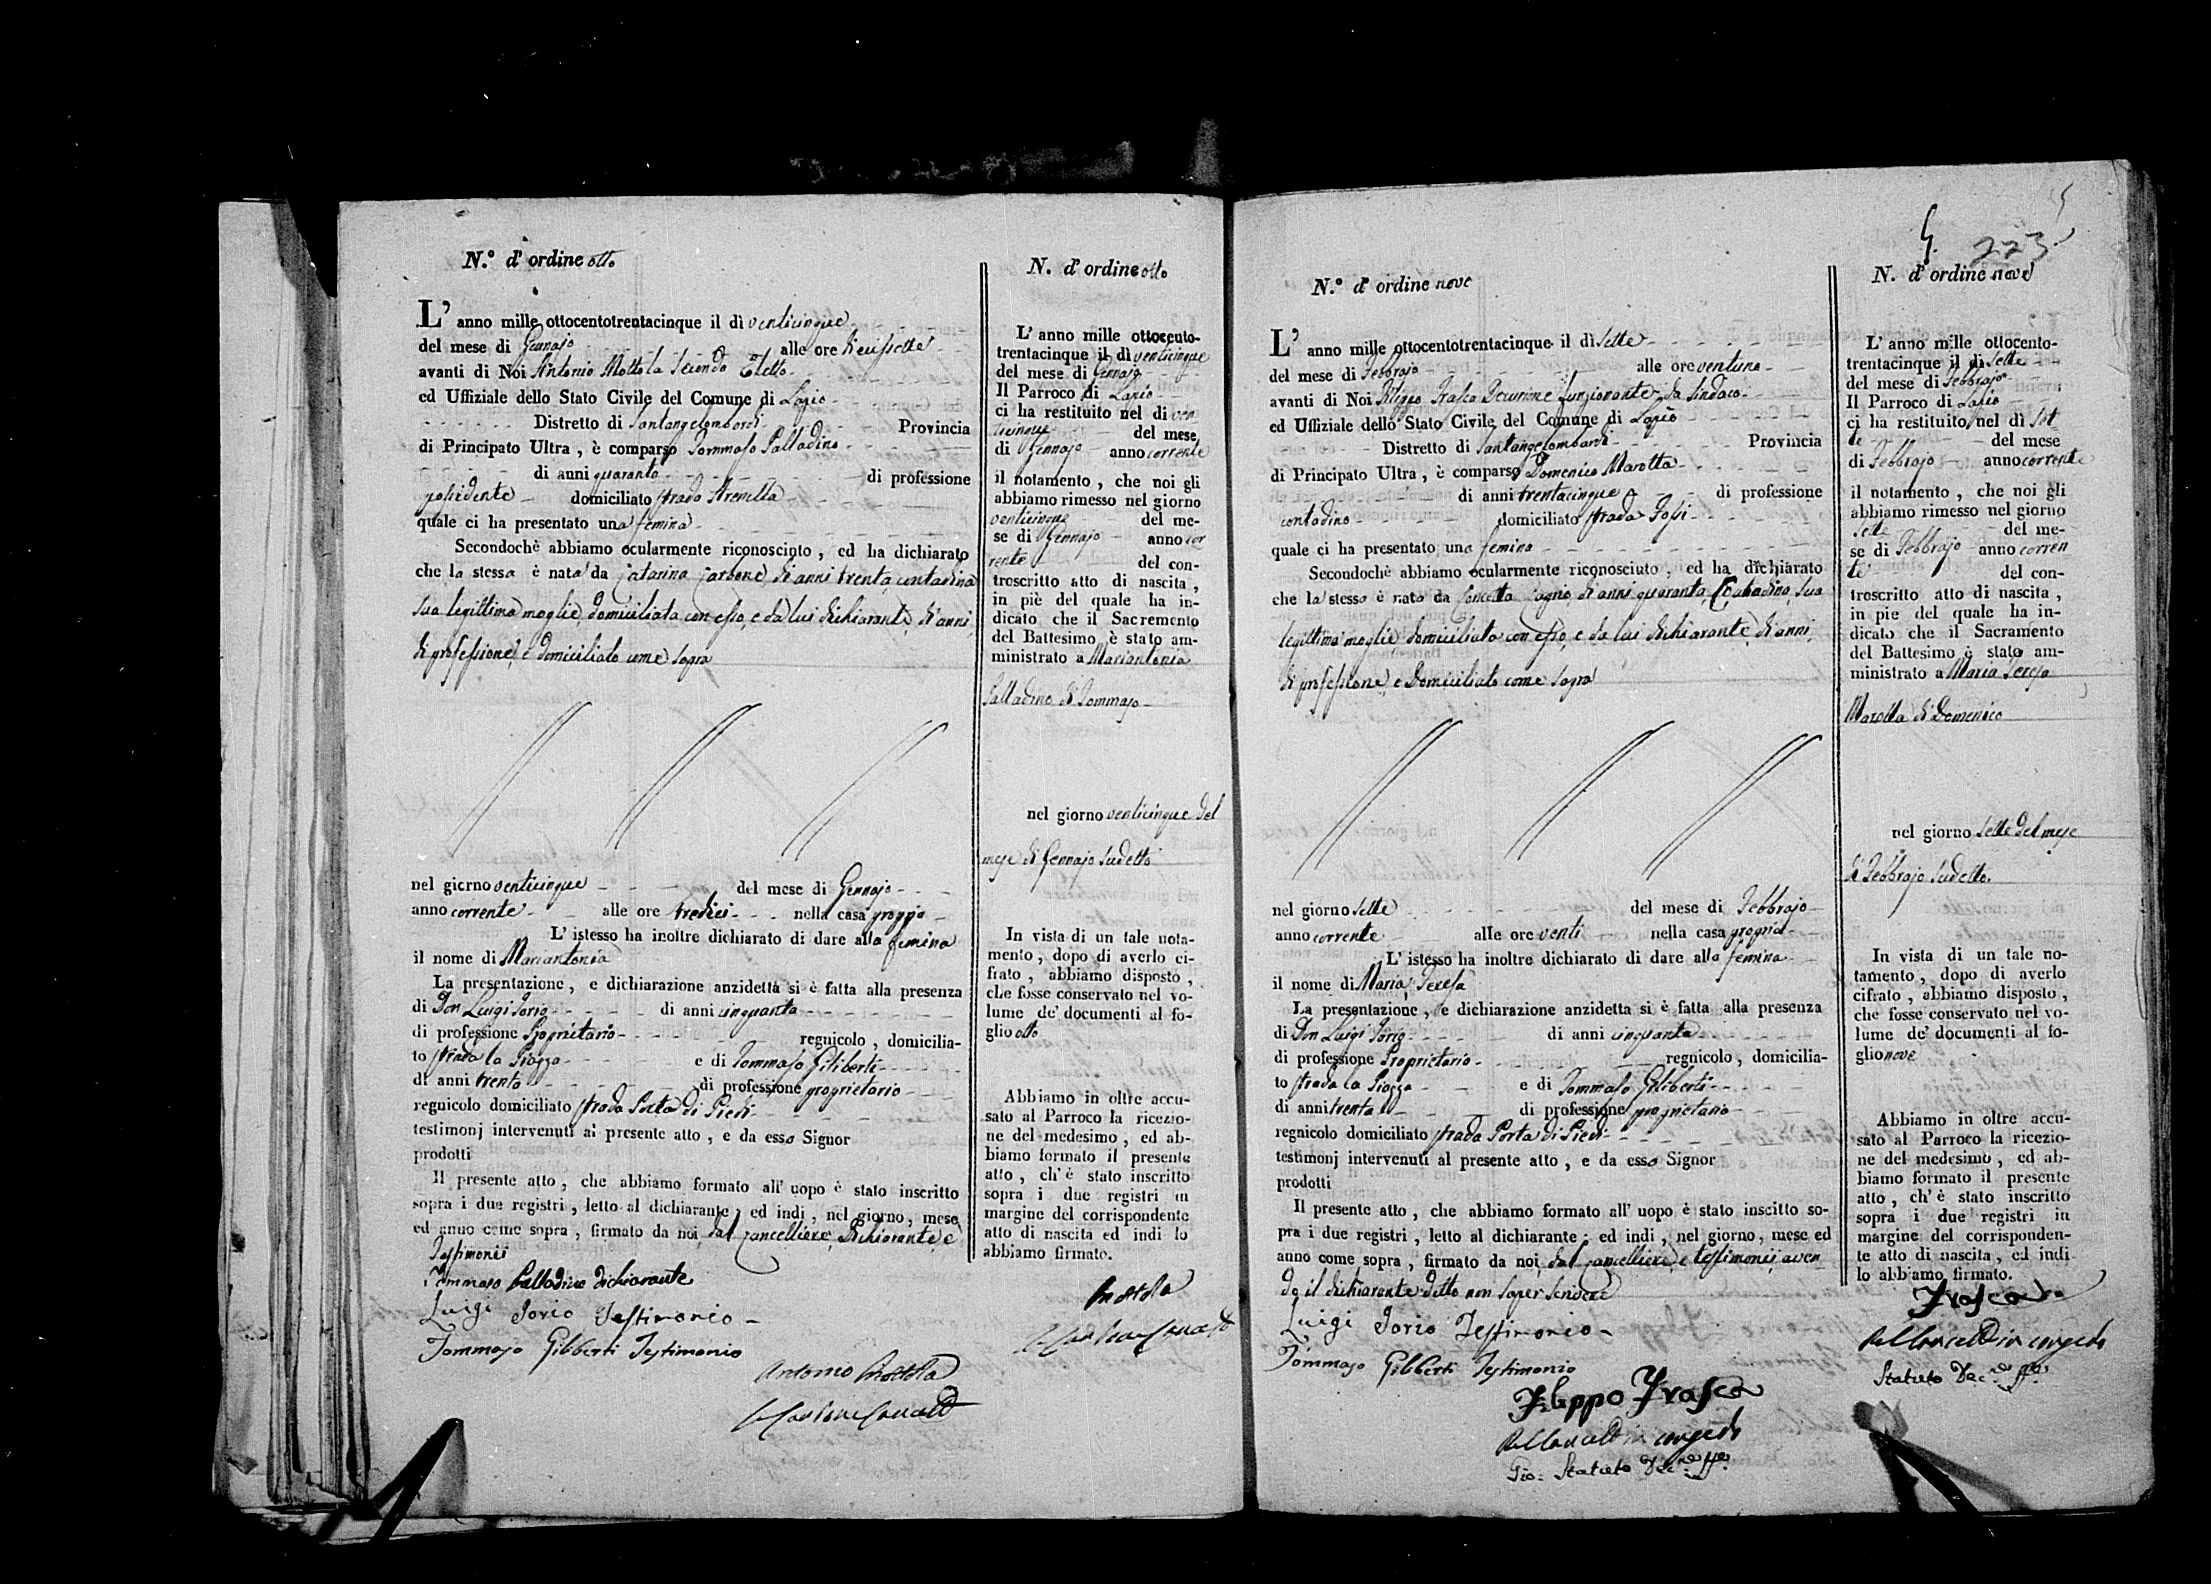 N.° d'ordine otto
L' anno mille ottocentotrentacinque il dì venticinque
del mese di Gennajo alle ore diecissette
avanti di Noi Antonio Mottola Secondo Eletto
ed Uffiziale dello Stato Civile del Comune di Lapio
Distretto di Santangelombardi Provincia
di Principato Ultra, è comparso Tommaso Palladino
di anni quaranta di professione
possidente domiciliato strada
quale ci ha presentato una femina
Secondochè abbiamo ocularmente riconosciuto, ed ha dichiarato
che la stessa è nata da Catarina Carbone di anni trenta contadina
sua legittima moglie domiciliata con esso, e da lui dichiarante di anni,
di professione, e domiciliato come sopra
nel giorno venticinque del mese di Gennajo
anno corrente alle ore tredici nella casa propria
L' istesso ha inoltre dichiarato di dare alla femina
il nome di Mariantonia
La presentazione, e dichiarazione anzidetta si è fatta alla presenza
di Don Luigi Jorio di anni cinquanta
di professione Proprietario regnicolo, domicilia-
to strada la Piazza e di Tommaso Giliberti
di anni trenta di professione proprietario
regnicolo domiciliato strada Porta di Piedi
testimonj intervenuti al presente atto, e da esso Signor
prodotti
Il presente atto, che abbiamo formato all' uopo è stato inscritto
sopra i due registri, letto al dichiarante, ed indi, nel giorno, mese
ed anno come sopra, firmato da noi, dal Cancelliere, Dichiarante, e
Testimonii
Tommaso Palladino dichiarante
Luigi Jorio Testimonio
Tommaso Giliberti Testimonio
Antonio Mottola
N. d'ordine otto
L' anno mille ottocento-
trentacinque il dì venticinque
del mese di Gennajo
Il Parroco di Lapio
ci ha restituito nel dì ven
ticinque del mese
di Gennajo anno corrente
il notamento, che noi gli
abbiamo rimesso nel giorno
venticinque del me-
se di Gennajo anno cor
rente del con-
troscritto atto di nascita,
in piè del quale ha in-
dicato che il Sacremento
del Battesimo è stato am-
ministrato a Mariantonia
Palladino di Tommaso
nel giorno venticinque del
mese di Gennajo sudetto
In vista di un tale nota-
mento, dopo di averlo ci-
frato, abbiamo disposto,
che fosse conservato nel vo-
lume de' documenti al fo-
glio otto
Abbiamo in oltre accu-
sato al Parroco la ricezio-
ne del medesimo, ed ab-
biamo formato il presente
atto, ch' è stato inscritto
sopra i due registri in
margine del corrispondente
atto di nascita ed indi lo
abbiamo firmato.
Mottola
5. 223
N.° d'ordine nove
L' anno mille ottocentotrentacinque il dì sette
del mese di Febbrajo alle ore ventuna
avanti di Noi Filippo Frasca Decurione funzionante da Sindaco
ed Uffiziale dello Stato Civile del Comune di Lapio
Distretto di Santangelombardi Provincia
di Principato Ultra, è comparso Domenico Marotta
di anni trentacinque di professione
contadino domiciliato strada Fossi
quale ci ha presentato una femina
Secondochè abbiamo ocularmente riconosciuto, ed ha dichiarato
che la stessa è nata da Concetta di anni quaranta, Contadina, sua
legittima moglie domiciliata con esso, e da lui dichiarante, di anni,
di professione, e domiciliato come sopra
nel giorno sette del mese di Febbrajo
anno corrente alle ore venti nella casa propria
L' istesso ha inoltre dichiarato di dare alla femina
il nome di Maria Teresa
La presentazione, e dichiarazione anzidetta si è fatta alla presenza
di Don Luigi Jorio di anni cinquanta
di professione Proprietario regnicolo, domicilia-
to strada la Piazza e di Tommaso Giliberti
di anni trenta di professione proprietario
regnicolo domiciliato strada Porta di Piedi
testimonj intervenuti al presente atto, e da esso Signor
prodotti
Il presente atto, che abbiamo formato all' uopo è stato inscitto so-
pra i due registri, letto al dichiarante; ed indi, nel giorno, mese ed
anno come sopra, firmato da noi, dal Cancelliere, e testimonii, aven
do il dichiarante detto non saper scrivere
Luigi Jorio Testimonio
Tommaso Giliberti Testimonio
Filippo Frasca
Pel Cancell in congedo
Gio: Statuto Dec.
N. d'ordine nove
L' anno mille ottocento-
trentacinque il dì sette
del mese di Febbrajo
Il Parroco di Lapio
ci ha restituito nel dì set
te del mese
di Febbrajo anno corrente
il notamento, che noi gli
abbiamo rimesso nel giorno
sette del me-
se di Febbrajo anno corren
te del con-
troscritto atto di nascita,
in pie del quale ha in-
dicato che il Sacramento
del Battesimo è stato am-
ministrato a Maria Teresa
Marotta di Domenico
nel giorno sette del mese
di Febbrajo sudetto.
In vista di un tale no-
tamento, dopo di averlo
cifrato, abbiamo disposto,
che fosse conservato nel vo-
lume de' documenti al fo-
glio nove
Abbiamo in oltre accu-
sato al Parroco la ricezio-
ne del medesimo, ed ab-
biamo formato il presente
atto, ch' è stato inscritto
sopra i due registri in
margine del corrisponden-
te atto di nascita, ed indi
lo abbiamo firmato.
Frasca
Pel Cancell in congedo
Statuto Dec.